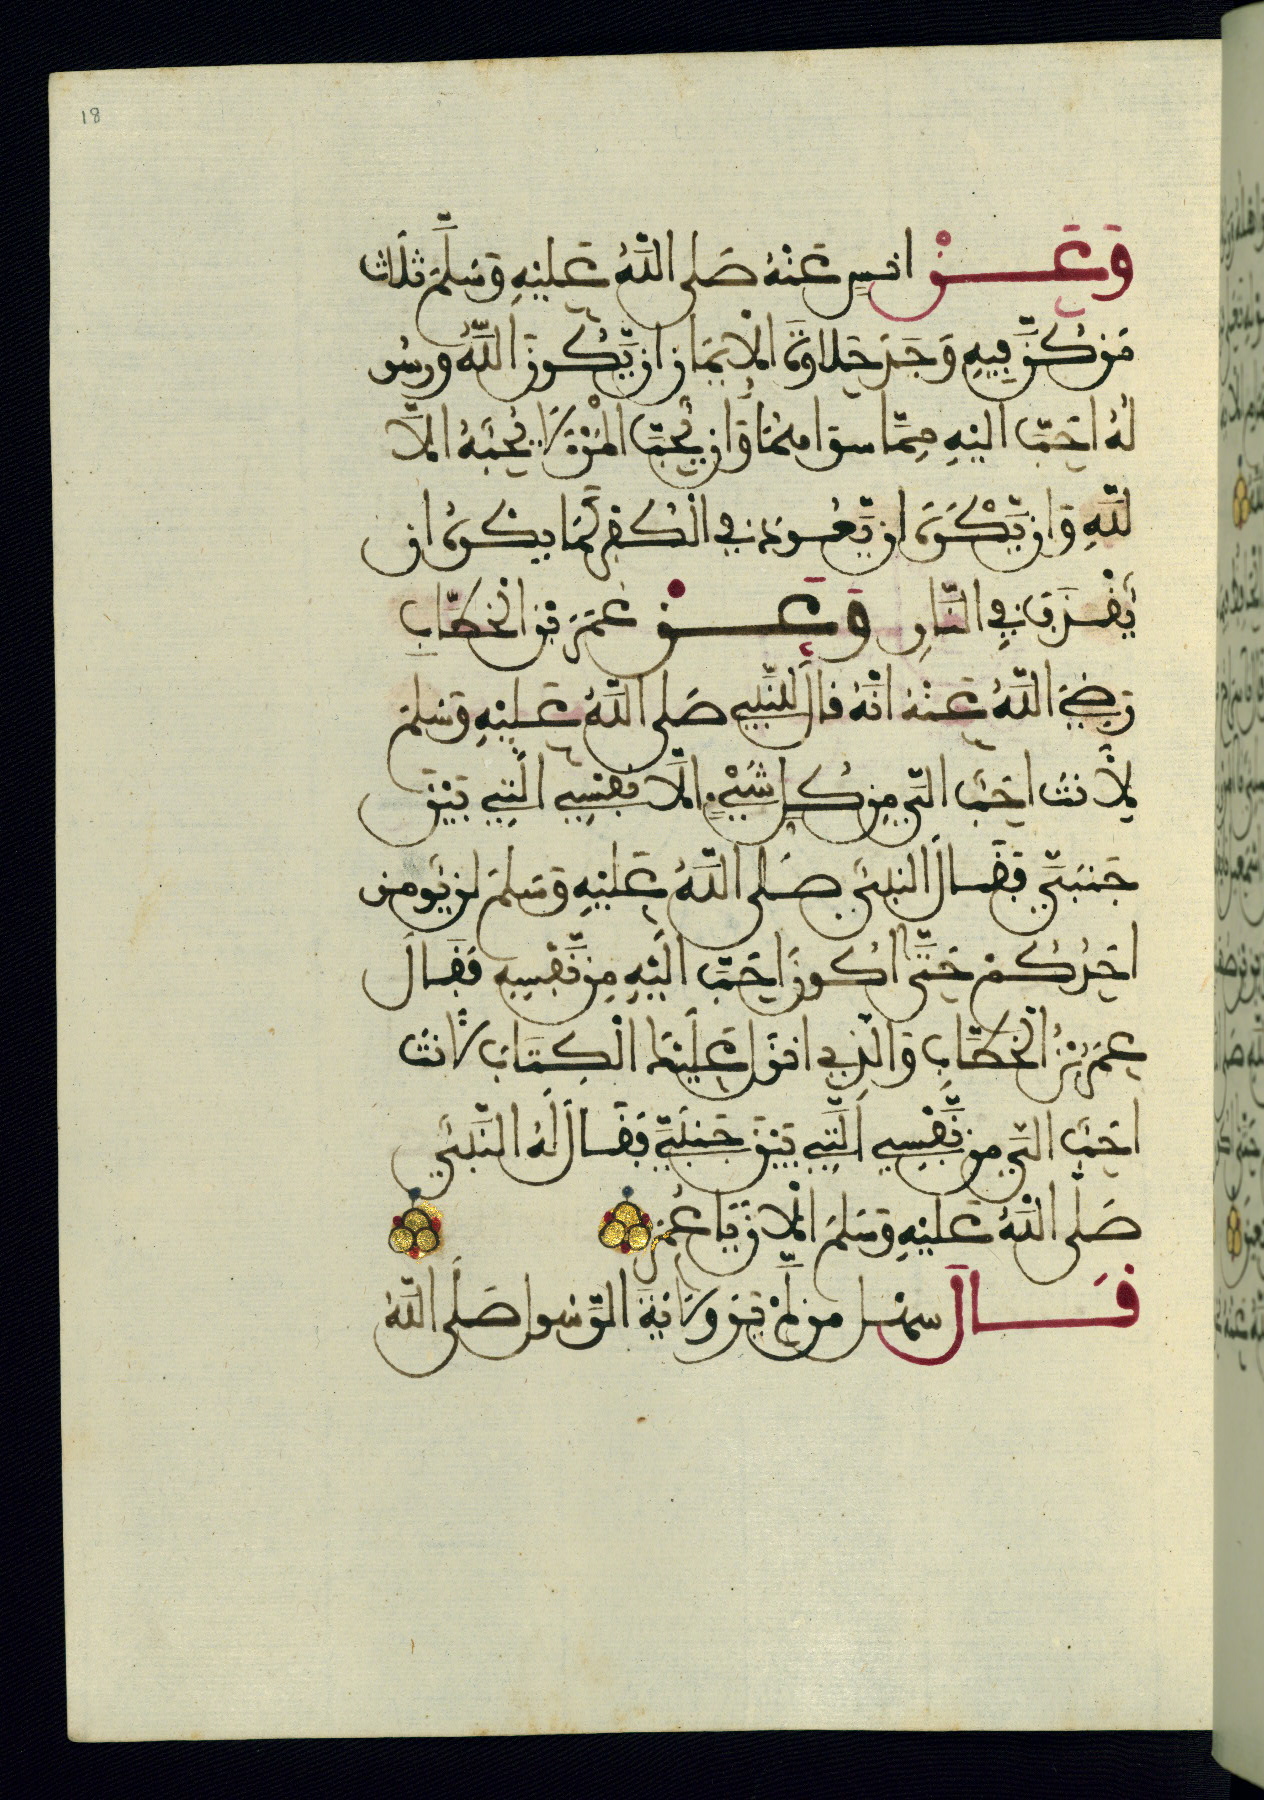 18
وَعَنْ انسٍ عَنْهُ صَلى اللَّهُ عَليْهِ وَسَلَّمَ ثلَاث
مَن كُنَّ فِيهِ وَجَدَ حَلاوَةَ الْاِيمَان ان يَّكُونَ اللَّهُ ورسُو
لُهُ احَبَّ اليْهِ مِمَّا سوَاهمُا وَان يُّحِبَّ الْمَرْءَ لَا يُحِبُّهُ الَّا
لِلَّهِ وَان يَّكْرَهَ ان يَّعُودَ فِي الْكُفرِ كَمَا يكْرَهُ ان
يُّقْذَفَ فِي النَّارِ وَعَنْ عُمَرَ بْنِ الْخَطَّابِ
رَضِيَ اللَّهُ عَنْهُ انَّهُ قالَ للنَّبِيِّ صَلى اللَّهُ عَليْهِ وَسَلمَ
لَأَنتَ احَبُّ الَيَّ مِن كُلِّ شَيْءٍ الَّا نفْسِي الَّتِي بَيْنَ
جَنبَيَّ فقَالَ النبِيُّ صَلى اللَّهُ عَليْهِ وَسَلمَ لن يُّومِن
احَدُكُمْ حَتَّى اكُونَ احَبَّ اليْهِ مِن نَّفْسِهِ فقَالَ
عمَرُ بْنُ الْخَطَّابِ وَالَّذِي انزَلَ عَلَيْكَ الْكِتَابَ لَأَنتَ
احَبُّ الَيَّ مِن نَّفْسِي الَّتِي بَيْنَ جَنبَيَّ فقَالَ لهُ النَّبيُّ
صَلَّى اللَّهُ عَليْهِ وَسَلمَ الْاَنَ يَا عُمَرُ
قَالَ سهْل مَن لَّمْ يَرَ وِلَايَةَ الرَّسُولِ صَلَّى اللَّهُ